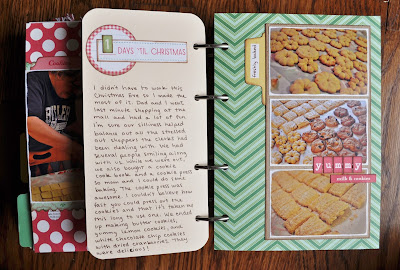 Cookin
1
DAYS 'TIL CHRISTMAS
I didn't have to work this
Christmas Eve so I made the
most of it. Dad and I went
last minute shopping at the
mall and had a lot of fun.
I'm sure our silliness helped
balance out all the stressed
out shoppers the clerks had
been dealing with. We had
several people smiling along
with us. While we were out,
we also bought a cookie
cook book and a cookie press
so mom and I could do some
baking. The cookie press was
awesome. I couldn't believe how
fast you could press out the
cookies and that it's taken me
this long to use one. We ended
up making butter cookies,
yummy lemon cookies, and
white chocolate chip cookies
with dried cranberries. They
were delicious!
freshly baked
yummy
milk & cookies